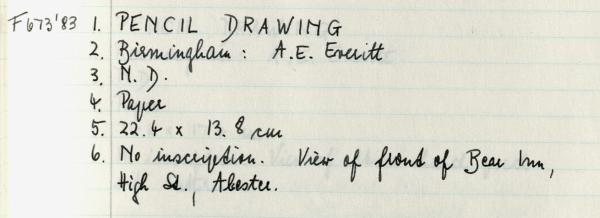 F673'83 1. PENCIL DRAWING
2. Birmingham: A.E. Everitt
3. N.D.
4. Paper
5. 22.4 x 13.8 cm
6. No inscription. View of front of Bear Inn,
High St., Alcester.